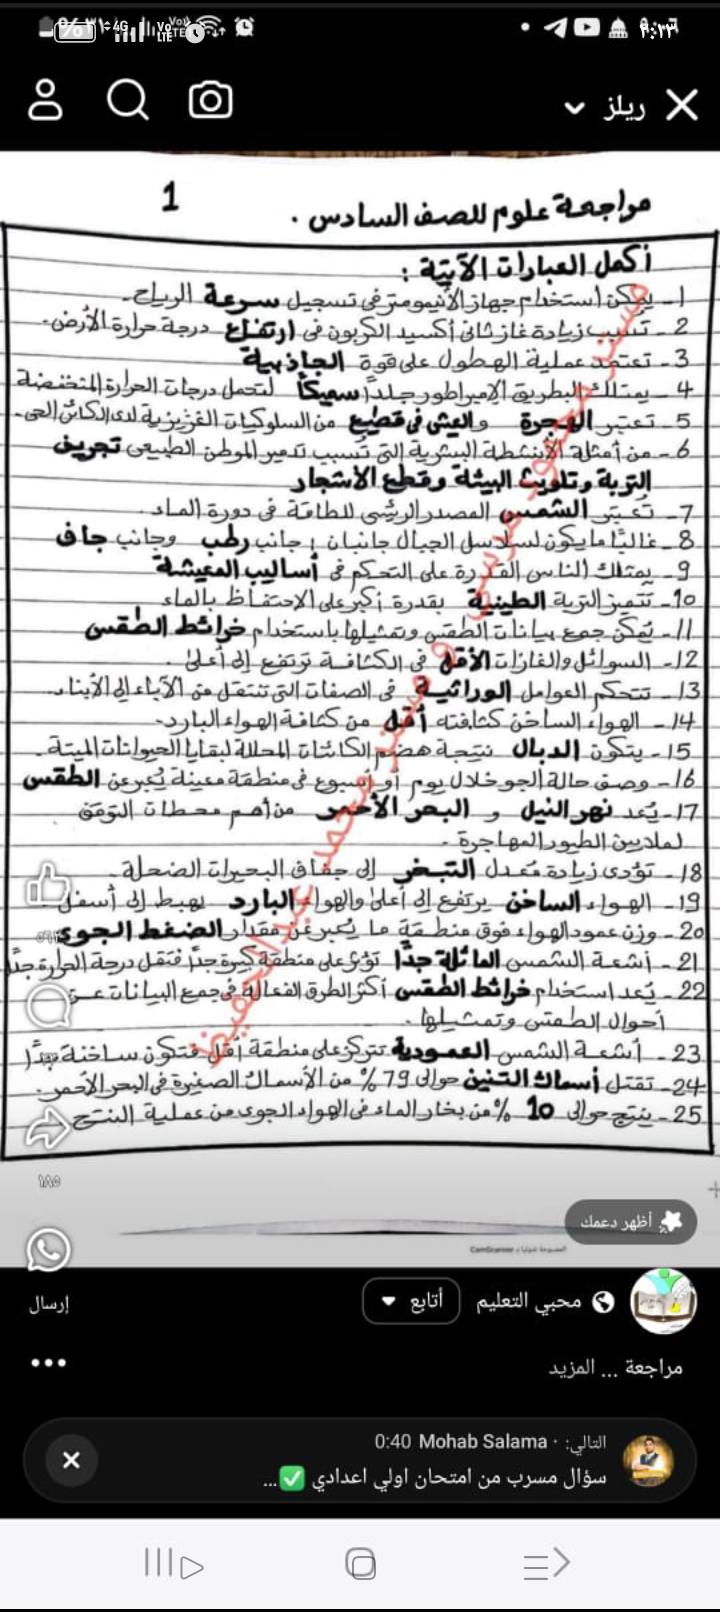 ٩:٢٣
4G
Vo LTE
ريلز
مراجعة علوم للصف السادس .
1
أكمل العبارات الآتية :
1- يمكن استخدام جهاز الأنيمومتر في تسجيل سرعة الرياح.
2- تتسبب زيادة غاز ثاني أكسيد الكربون في ارتفاع درجة حرارة الأرض.
3- تعتمد عملية الهطول على قوة الجاذبية
4- يمتلك البطريق الإمبراطور جلداً سميكاً لتحمل درجات الحرارة المنخفضة
5- تعتبر الهجرة والعيش في قطيع من السلوكيات الغريزية لدى الكائن الحي.
6- من أمثلة الأنشطة البشرية التي تسبب تدمير الموطن الطبيعي تجريف
التربة وتلويث البيئة وقطع الأشجار
7- تعتبر الشمس المصدر الرئيسي للطاقة في دورة الماء.
8- غالبًا ما يكون لسلاسل الجبال جانبان ؛ جانب رطب وجانب جاف
9- يمتلك الناس القدرة على التحكم في أساليب المعيشة
10- تتميز التربة الطينية بقدرة أكبر على الاحتفاظ بالماء
11- يمكن جمع بيانات الطقس وتمثيلها باستخدام خرائط الطقس
12- السوائل والغازات الأقل في الكثافة ترتفع إلى أعلى.
13- تتحكم العوامل الوراثية في الصفات التي تنتقل من الآباء إلى الأبناء.
14- الهواء الساخن كثافته أقل من كثافة الهواء البارد.
15- يتكون الدبال نتيجة هضم الكائنات المحللة لبقايا الحيوانات الميتة.
16- وصف حالة الجو خلال يوم أو أسبوع في منطقة معينة يُعبر عن الطقس
17- يُعد نهر النيل و البحر الأحمر من أهم محطات التوقف
لملايين الطيور المهاجرة.
18- تؤدي زيادة مُعدل التبخر إلى جفاف البحيرات الضحلة.
19- الهواء الساخن يرتفع إلى أعلى والهواء البارد يهبط إلى أسفل
20- وزن عمود الهواء فوق منطقة ما يُعبر عن مقدار الضغط الجوي
21- أشعة الشمس المائلة جدًا تؤثر على منطقة كبيرة جدًا فتقل درجة الحرارة جدًا
22- يُعد استخدام خرائط الطقس أكثر الطرق الفعالة في جمع البيانات عن
أحوال الطقس وتمثيلها.
23- أشعة الشمس العمودية تتركز على منطقة أقل فتكون ساخنة جدًا
24- تقتل أسماك التنين حوالي 79% من الأسماك الصغيرة في البحر الأحمر.
25- ينتج حوالي 10% من بخار الماء في الهواء الجوي من عملية النتح
مستر محمود مرسي و مستر محمد عبد الحفيظ
١٨٥
أظهر دعمك
CamScanner
إرسال
محبي التعليم
أتابع
مراجعة ... المزيد
التالي: · Mohab Salama 0:40
سؤال مسرب من امتحان اولي اعدادي ✅...